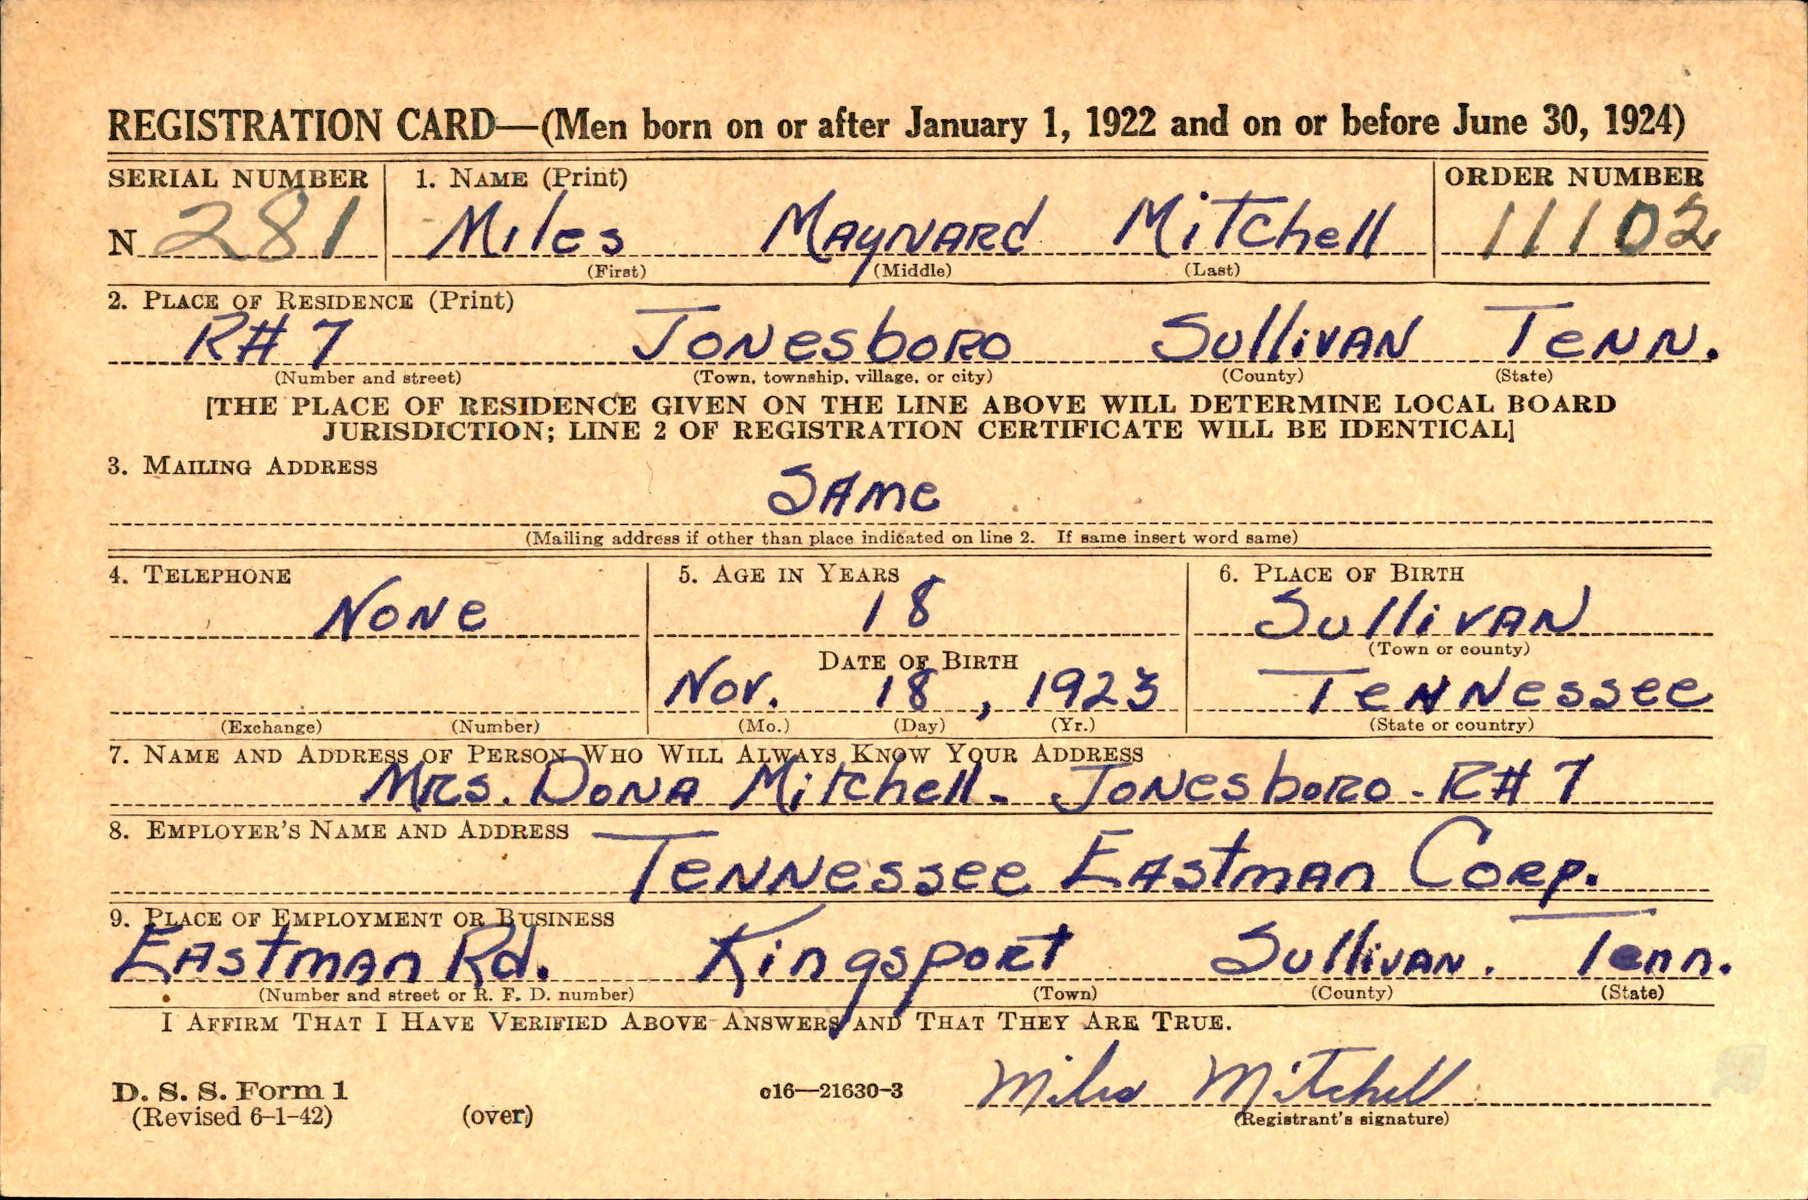 REGISTRATION CARD—(Men born on or after January 1, 1922 and on or before June 30, 1924)
SERIAL NUMBER 1. NAME (Print) ORDER NUMBER
N 281 Miles Maynard Mitchell 11102
(First) (Middle) (Last)
2. PLACE OF RESIDENCE (Print)
R# 7 Jonesboro Sullivan Tenn.
(Number and street) (Town, township, village, or city) (County) (State)
[THE PLACE OF RESIDENCE GIVEN ON THE LINE ABOVE WILL DETERMINE LOCAL BOARD
JURISDICTION; LINE 2 OF REGISTRATION CERTIFICATE WILL BE IDENTICAL]
3. MAILING ADDRESS
SAME
(Mailing address if other than place indicated on line 2. If same insert word same)
4. TELEPHONE 5. AGE IN YEARS 6. PLACE OF BIRTH
None 18 Sullivan
(Town or county)
DATE OF BIRTH
Nov. 18, 1923 Tennessee
(Exchange) (Number) (Mo.) (Day) (Yr.) (State or country)
7. NAME AND ADDRESS OF PERSON WHO WILL ALWAYS KNOW YOUR ADDRESS
Mrs. Dona Mitchell - Jonesboro - R# 7
8. EMPLOYER'S NAME AND ADDRESS
Tennessee Eastman Corp.
9. PLACE OF EMPLOYMENT OR BUSINESS
Eastman Rd. Kingsport Sullivan. Tenn.
(Number and street or R. F. D. number) (Town) (County) (State)
I AFFIRM THAT I HAVE VERIFIED ABOVE ANSWERS AND THAT THEY ARE TRUE.
D. S. S. Form 1 c16—21630-3 Miles Mitchell
(Revised 6-1-42) (over) (Registrant's signature)